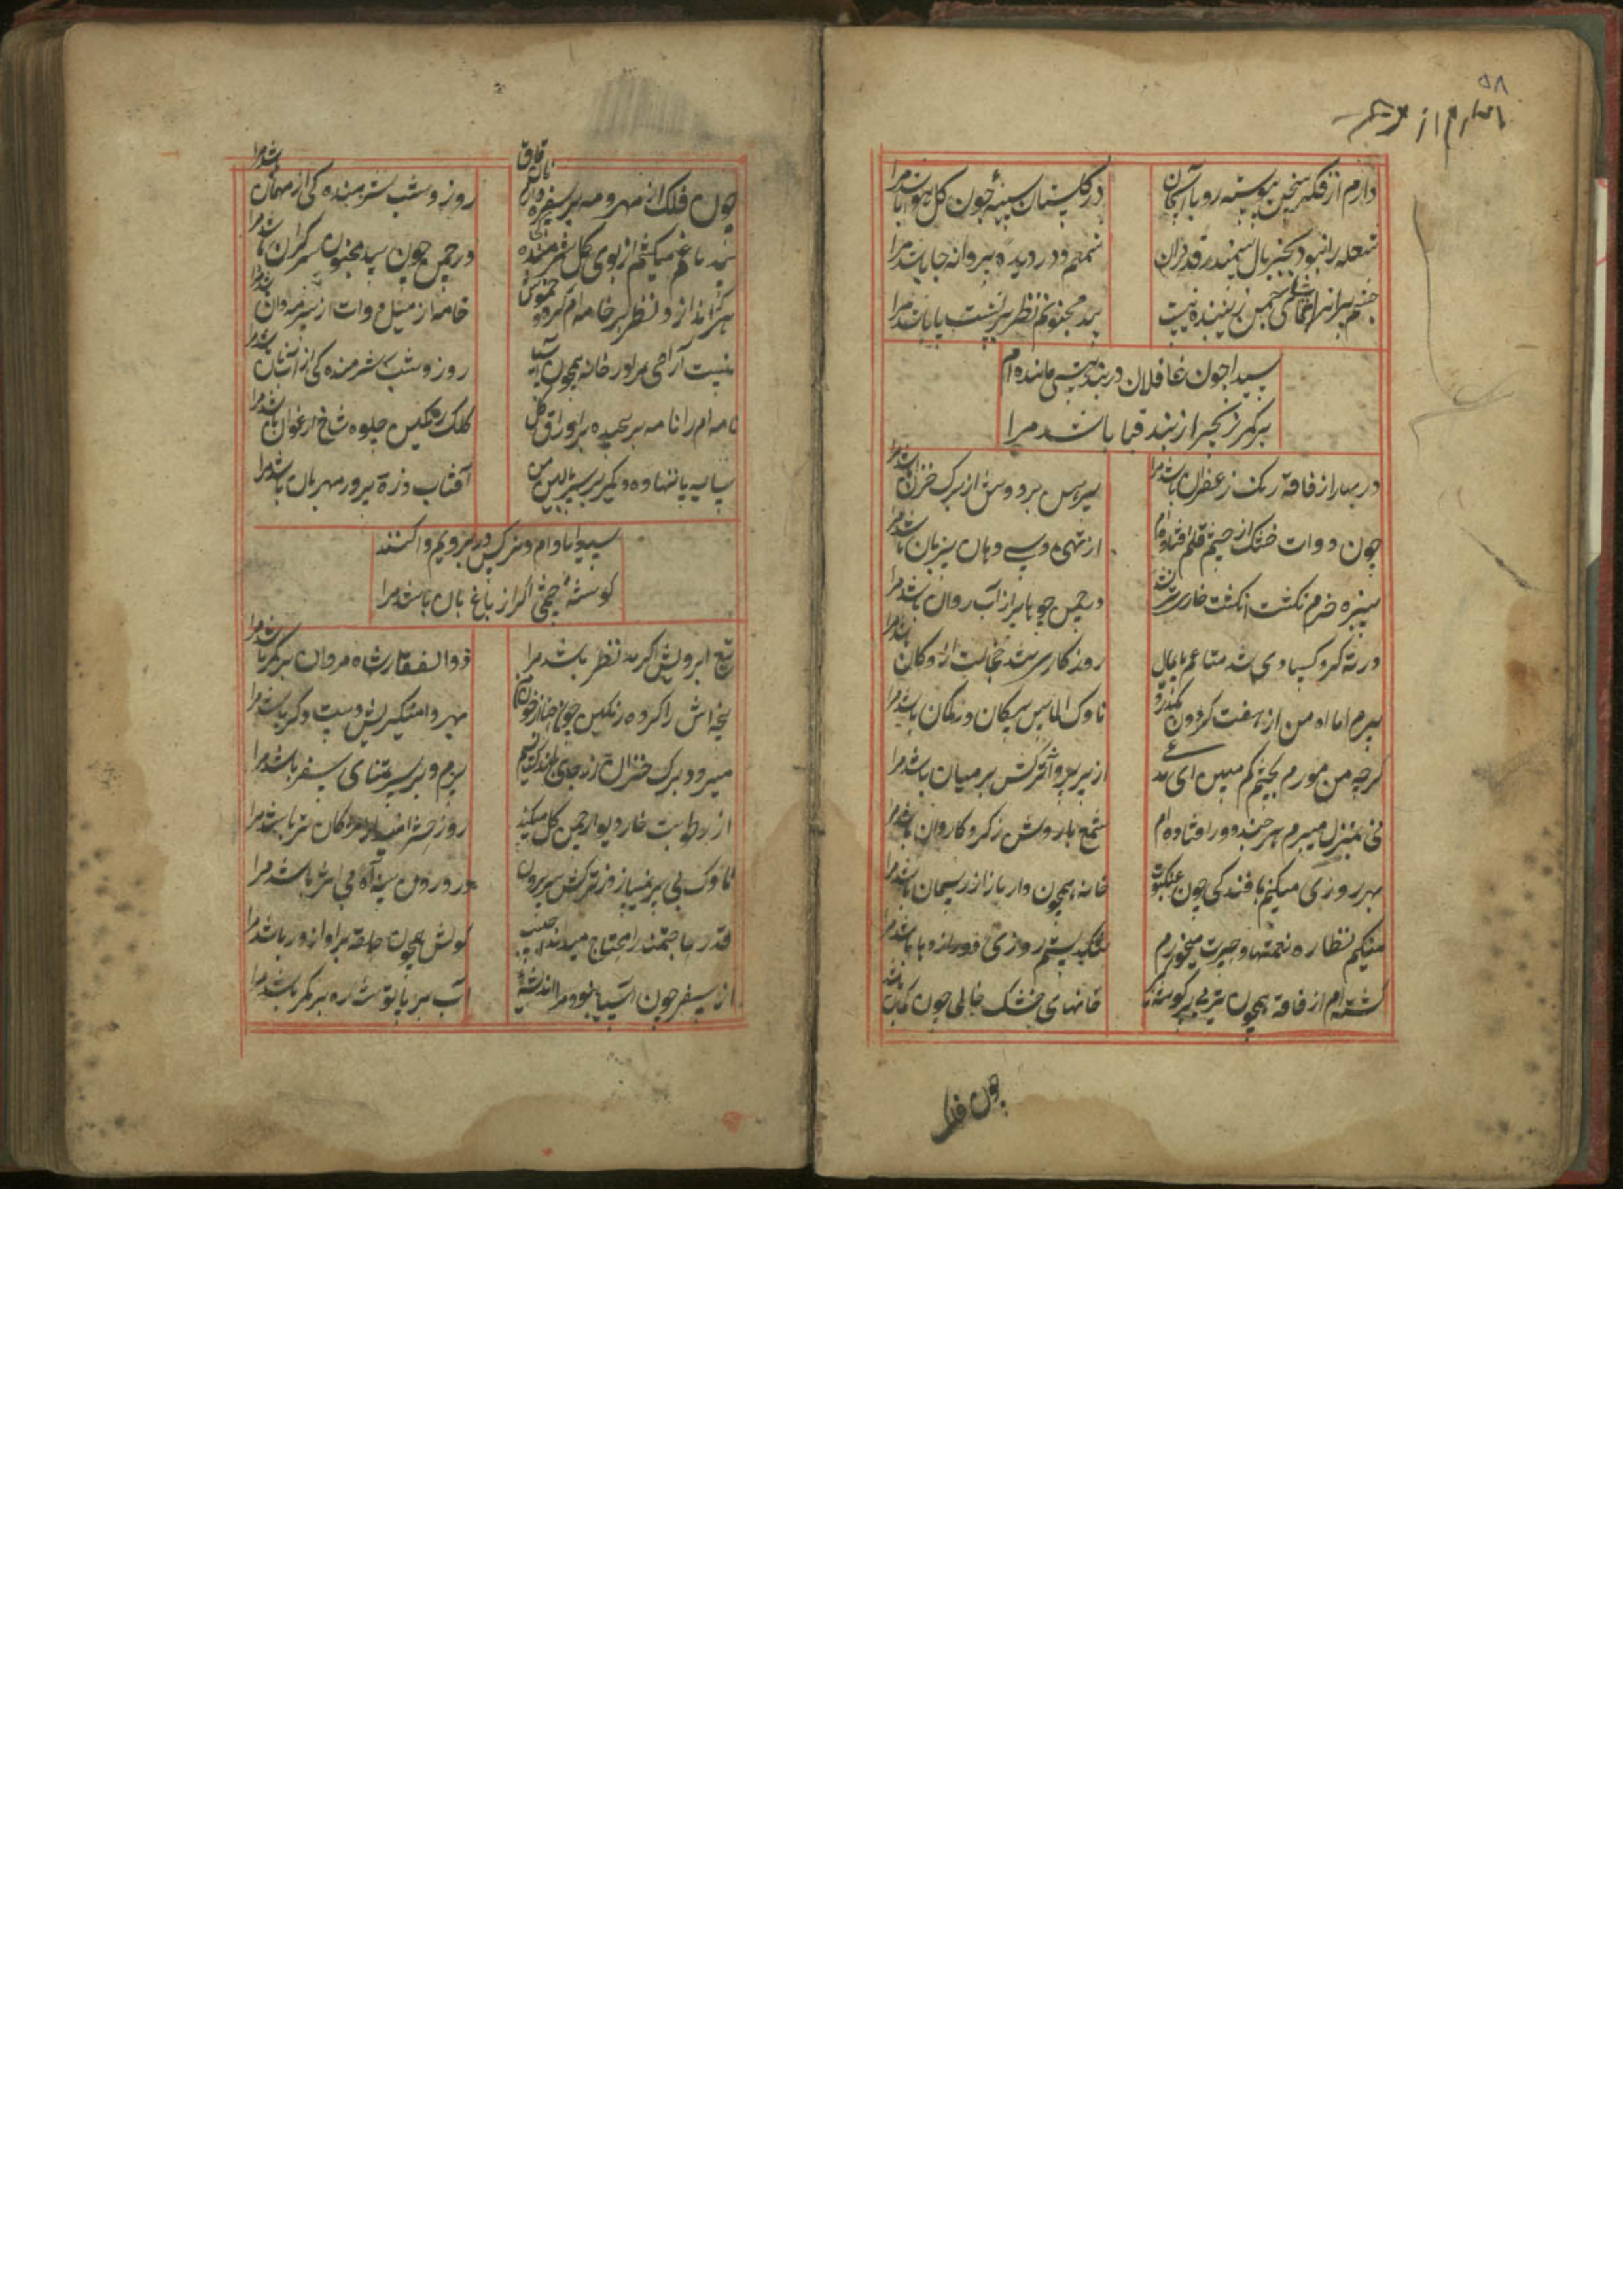 ۵۸
دارم از فکر سخن پیوسته رو با آسمان
در گلستان سینه چون گل هوا باشد مرا
شعله را نبود بجز بال سمندر قدردان
شمعم و در دیده پروانه جا باشد مرا
چشم بر
بید مجنونم نظر بر پشت پا باشد مرا
سیدا چون غافلان در بند هستی مانده ام
بر کمر زنجیر از بند قبا باشد مرا
در بهار از فاقه رنگ زعفران باشد مرا
پیرهن بر دوش از برگ خزان باشد مرا
چون دوات خشک از چشم قلم افتاده ام
از تهی دستی دهان بی زبان باشد مرا
سبزه خرم نگشت انگشت خارش
در چمن جو باید از آب روان باشد مرا
در ته گرد کسادی شد متاعم پایمال
روزگاری شد خجالت از دکان باشد مرا
پیرم اما آه من از هفت گردون بگذرد
ناوک الماس پیکان در کمان باشد مرا
گرچه من مورم بچشم کم مبین ای مدعی
از پر و ترکش بر میان باشد مرا
نی بمنزل میبرم هر چند دور افتاده ام
شمع بالوش ز گرد کاروان باشد مرا
بهر روزی میکنم بافندگی چون عنکبوت
خانه همچون دار باز از ریسمان باشد مرا
میکنم نظاره نعمتها و حسرت میخورم
تنگدستم روزی دور از دهان باشد مرا
گشته ام از فاقه همچون تیر بی پر گوشه
خانهای خشک خالی چون کمان باشد
چون فلک
چون فلک از مهر و مه بر سفره دارم نان فاق
روز و شب شرمندگی از مهمان باشد مرا
بید باغم میکشم از بوی گل شرمندگی
در چمن چون بید مجنون سر گران باشد مرا
هرگز اندازد نظر بر خامه ام گردد خموش
خامه از میل دوات از سرمه دان باشد مرا
نیست آرامی مرا در خانه همچون آسیا
روز و شب شرمندگی از آب و نان باشد مرا
نامه ام را نامه بر پیچیده بر اوراق گل
کلک رنگین جلوه شاخ ارغوان باشد مرا
سایه پا ننهاده دیگر بر سر بالین من
آفتاب ذره پرور مهربان باشد مرا
سیدا بادام و نرگس در برویم وا کنند
گوشه چشمی اگر از باغبان باشد مرا
تیغ ابرویش اگر مد نظر باشد مرا
ذوالفقار شاه مردان بر کمر باشد مرا
پنجه اش را کرده رنگین چون حنا از خون من
بهر دامنگیریش دست دگر باشد مرا
میرود برگ خزان از جای باندک نسیم
پیرم و بر سر تمنای سفر باشد مرا
از رطوبت خار دیوار چمن گل میکند
روز حشر امید از مژگان تر باشد مرا
ناوک بی پر نمی آید ز ترکش برون
در درون سینه آه بی اثر باشد مرا
قدر حاجتمند را محتاج میداند حبیب
گوش همچون حلقه بر آواز در باشد مرا
از سفر چون آسیا نبود مرا اندیشه
آب سر تا پا توشه ره بر کمر باشد مرا